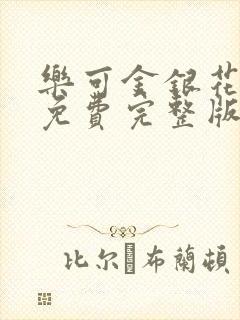 樂可金銀花
免費完整版
比尔�布蘭頓